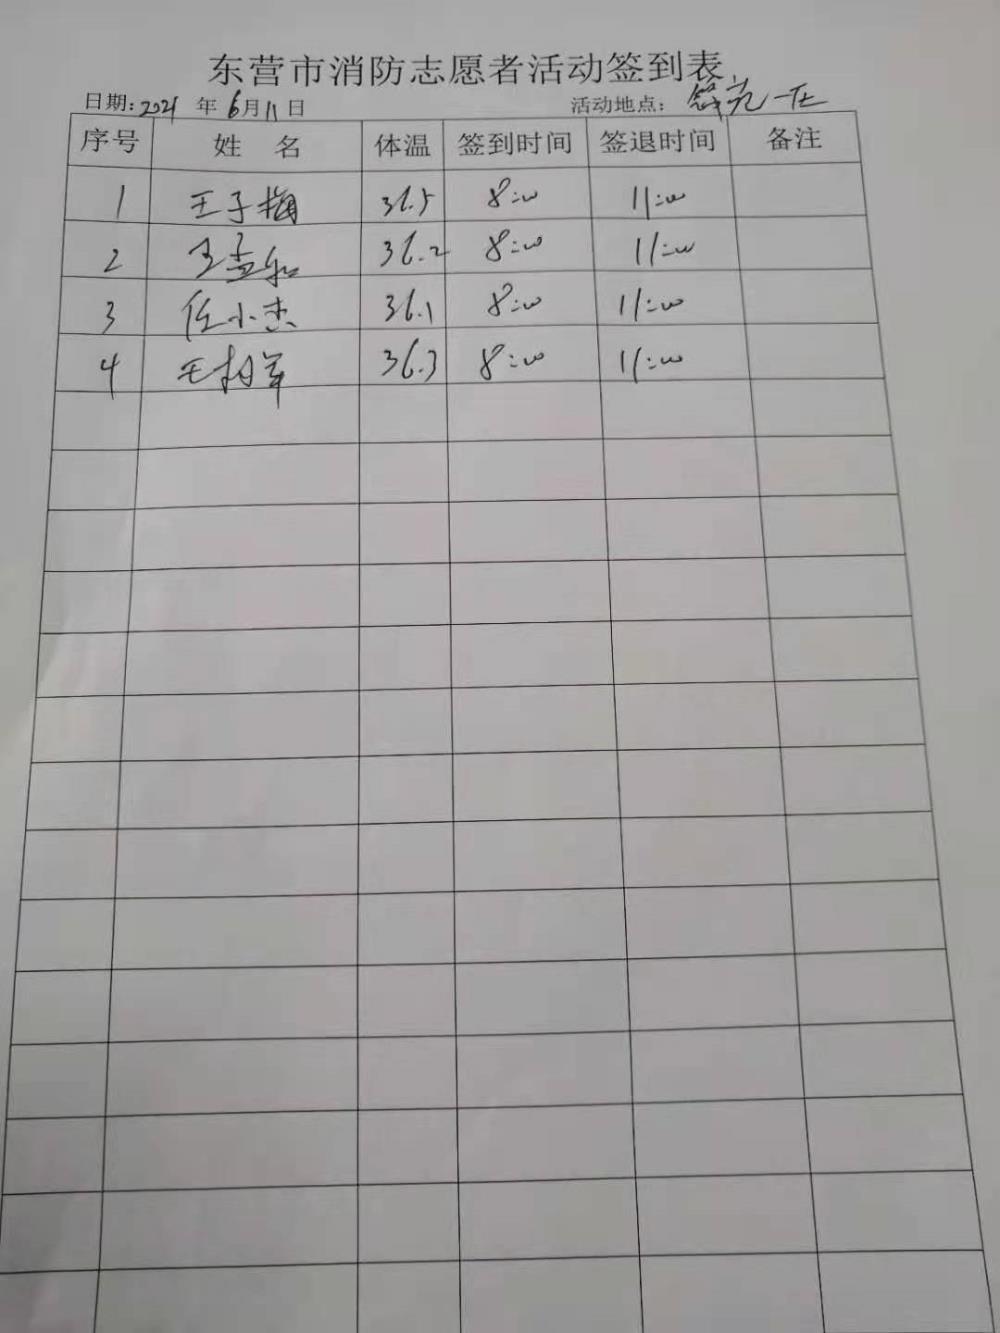 东营市消防志愿者活动签到表
日期: 2021 年 6月11日 活动地点: 苑一区
序号 姓 名 体温 签到时间 签退时间 备注
1 王子梅 36.5 8:00 11:00
2 王孟和 36.2 8:00 11:00
3 任小杰 36.1 8:00 11:00
4 王 36.3 8:00 11:00